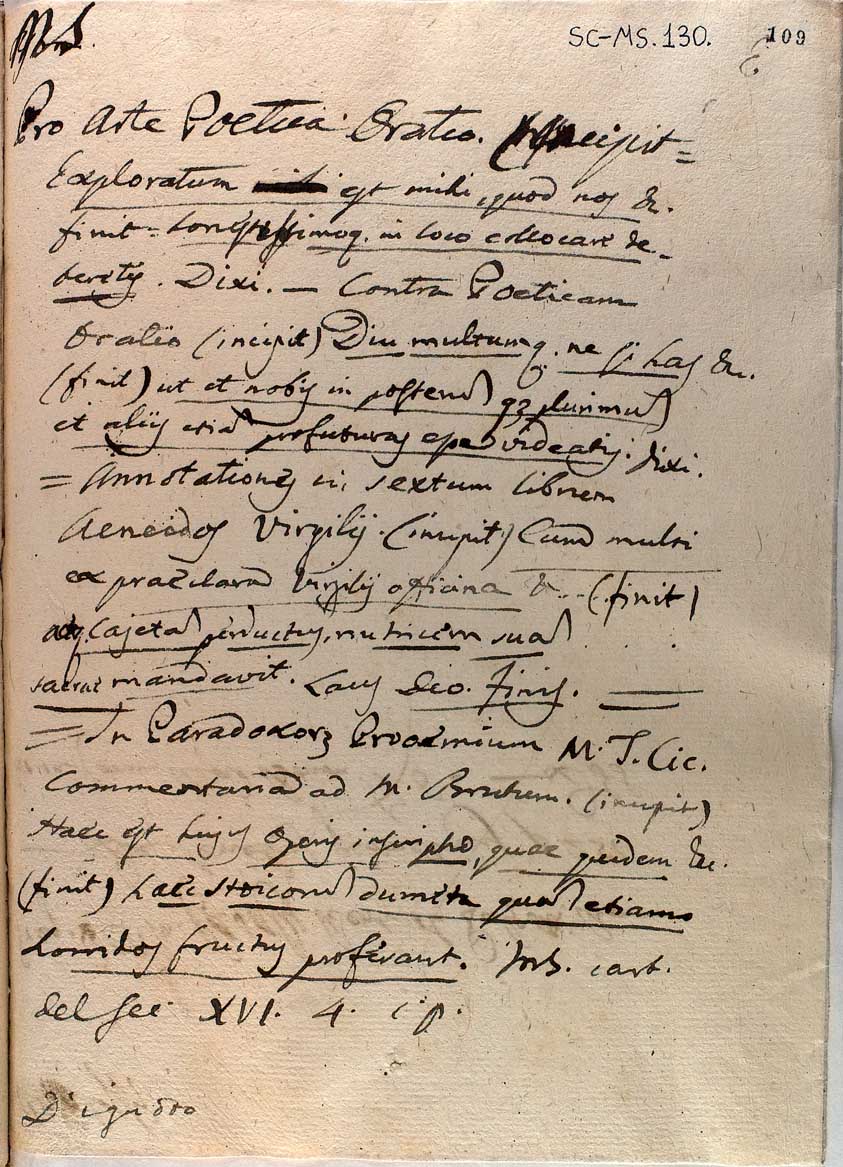 Ms.
SC-MS. 130. 109
Pro Arte Poetica Oratio. (Incipit =
Exploratum est mihi, quod nos &c.
finit = honestissimoq. in loco collocare de-
beretis. Dixi. — Contra Poeticam
Oratio (incipit) Diu multumq. ne si has &c.
(finit) ut et nobis in posterū qȝ plurimū
et aliis etiā profuturas esse videatis. Dixi.
= Annotationes in sextum librum
Aeneidos Virgilij. (incipit) Cum multi
ex praeclara Virgilij officina &... (finit)
atq. Cajetā perductus, nutricem suā
mandavit. Laus Deo. Finis. —
= In Paradoxorȝ Prooemium M. T. Cic.
Commentaria ad M. Brutum. (incipit)
Haec est hujus Operis inscriptio, quae quidem &c.
(finit) haec stoicorū dumeta quā etiam
horridos fructus proferant. Ms. cart.
del sec. XVI. 4. c. p.
D'ignoto